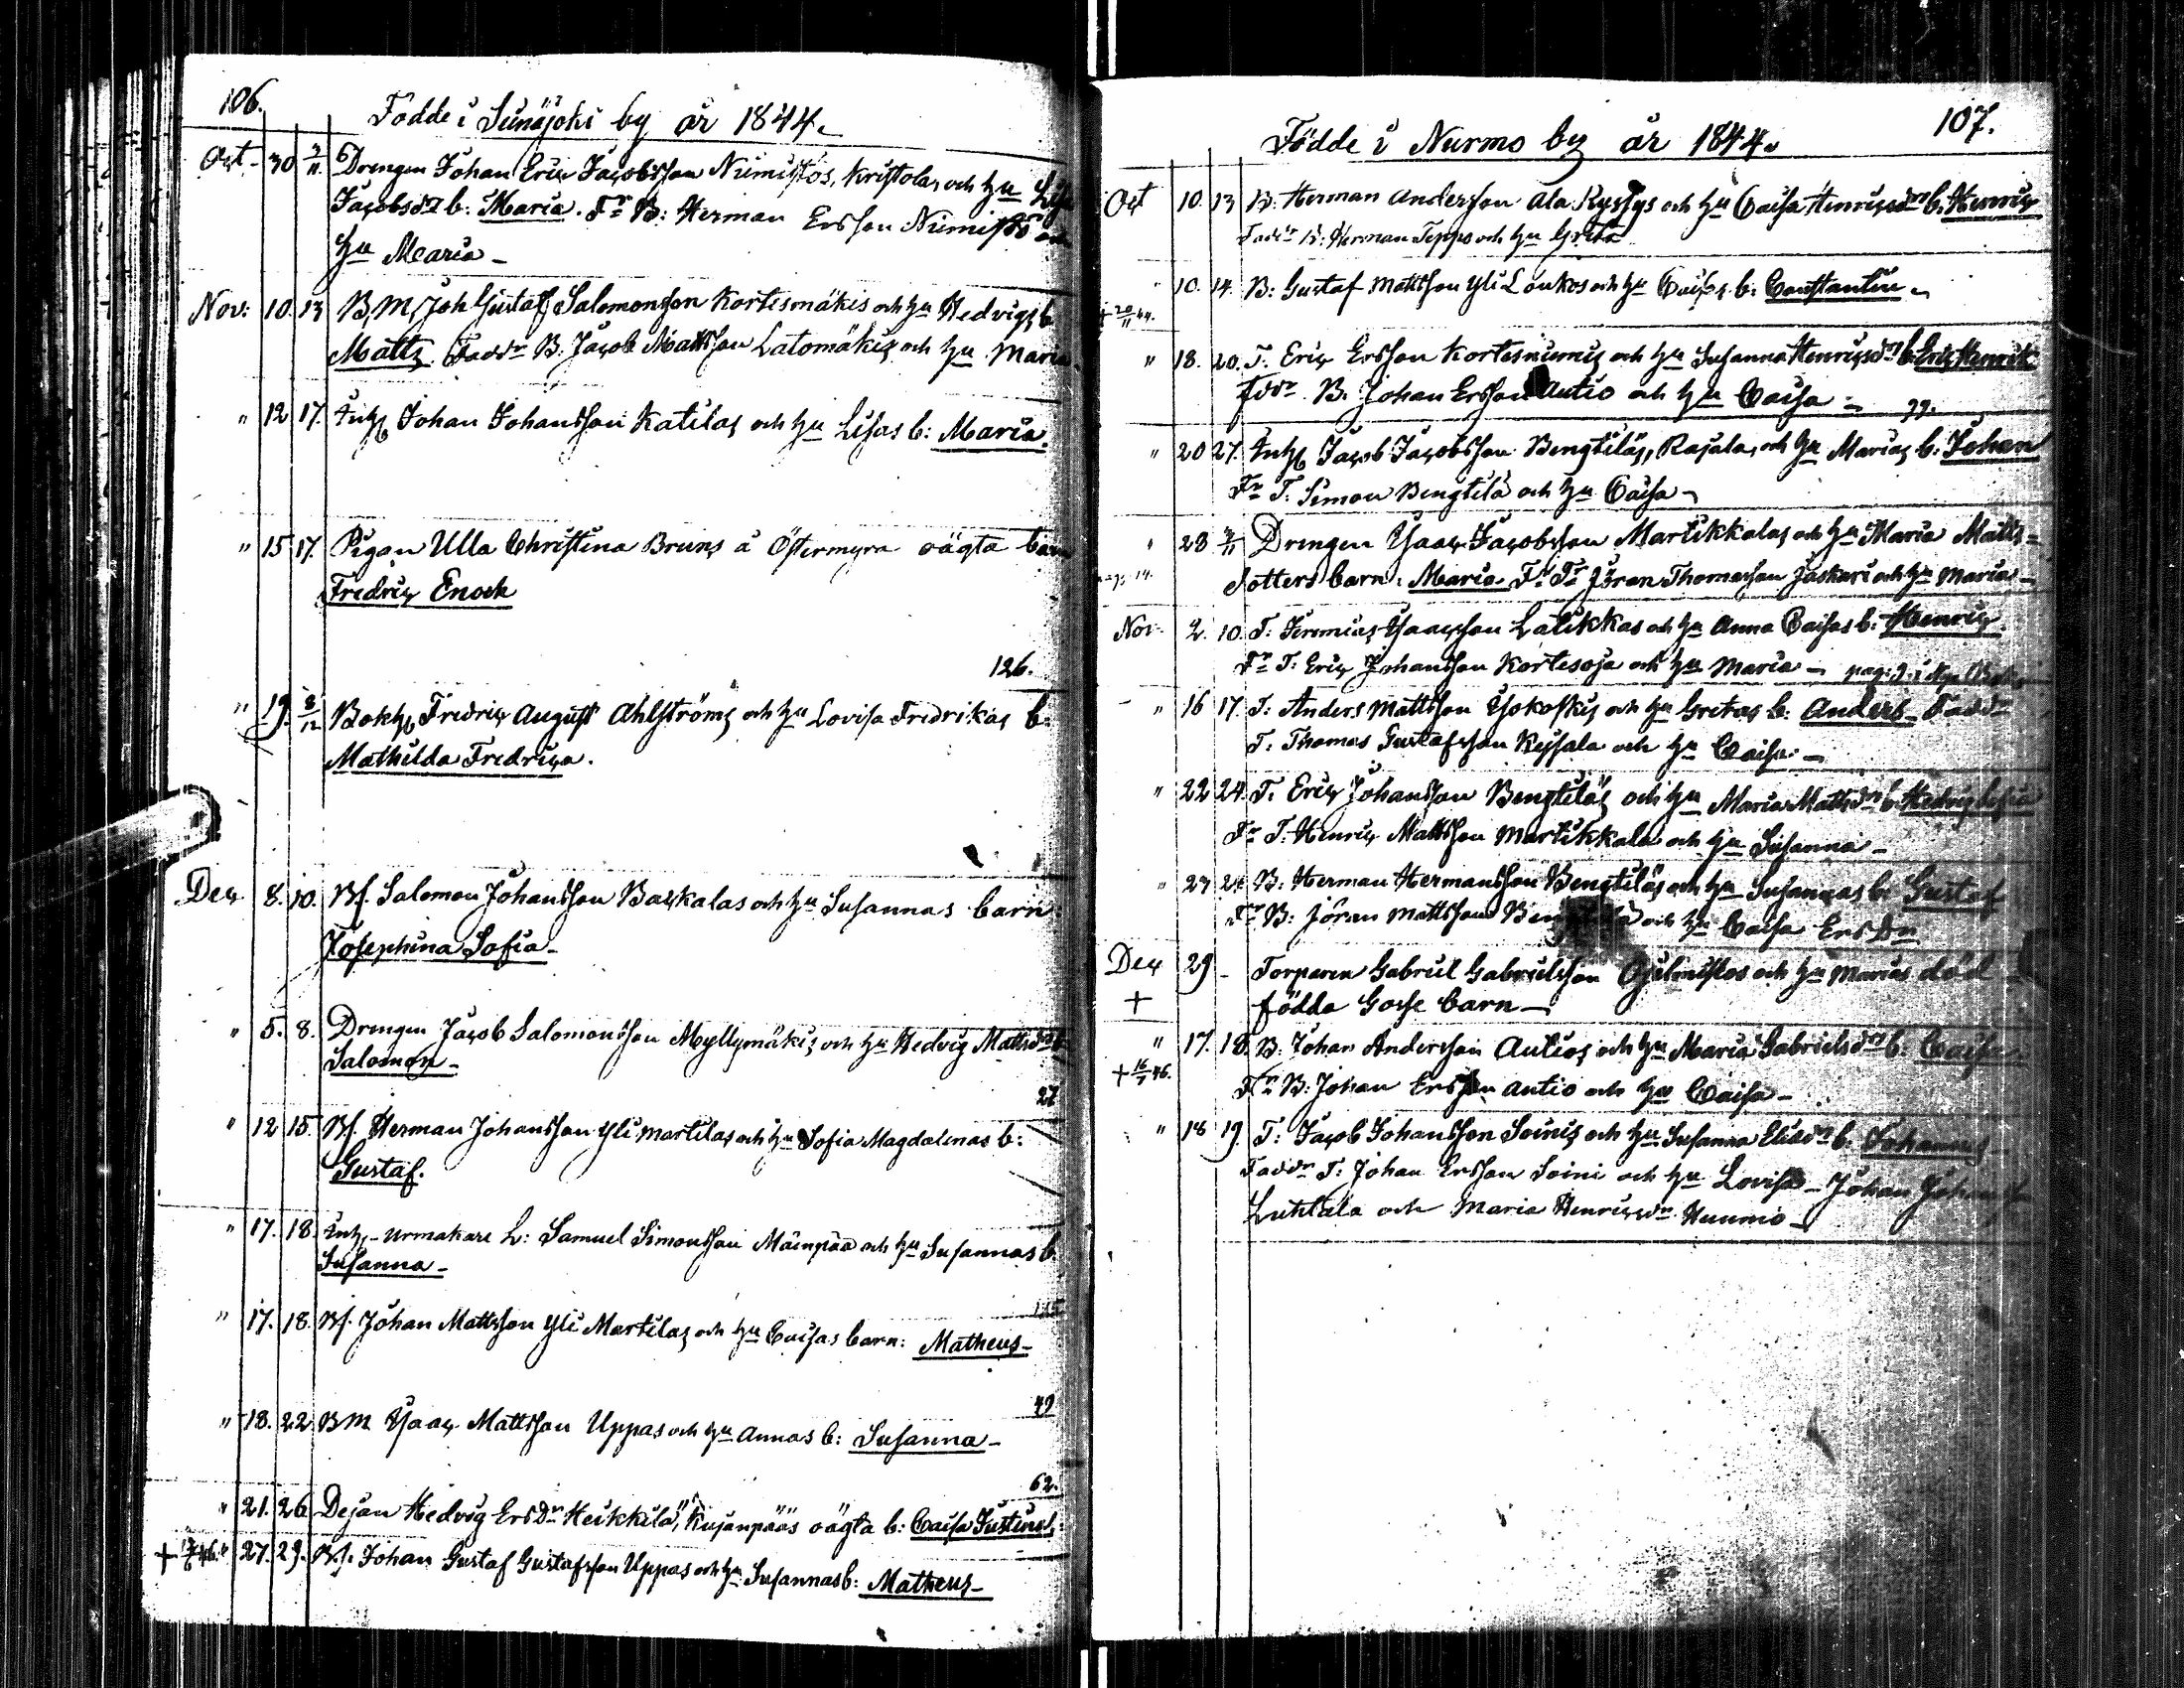 106.
Födde i Seinäjoki by år 1844.
Oct. 30 3/11 Drengen Johan Eric Jacobsson Niemistös, Kristolas, och hu Lisa
Jacobsdrs b: Maria. Fr B: Herman Ersson Niemistö och
hu Maria –
Nov: 10. 13 B, M, Joh Gustaf Salomonsson Kortesmäkis och hu Hedvigs b.
Matts. Faddr B. Jacob Mattsson Latomäkis och hu Maria
" 12 17. Inhs Johan Johansson Katilas och hu Lisas b: Maria.
" 15 17. Pigan Ulla Christina Bruns å Östermyra oägta barn
Fredric Enoch
126.
" 19. 8/12 Bokh, Fredric August Ahlströms och hu Lovisa Fredrikas b.
Mathilda Fredrica.
Dec 8. 10. Bf. Salomon Johansson Backalas och hu Susannas barn:
Josephina Sofia –
" 5. 8. Drengen Jacob Salomonsson Myllymäkis och hu Hedvig Mattsdrs b
Salomon –
27
" 12 15. Bf. Herman Johansson Yli Martilas och hu Sofia Magdalenas b:
Gustaf.
" 17. 18. Inh, – urmakare L: Samuel Simonsson Mäenpää och hu Susannas b.
Susanna –
" 17. 18. Bf. Johan Mattsson Yli Martilas och hu Caisas barn: Matheus –
49
" 18. 22 BM Isaac Mattsson Uppas och hu Annas b: Susanna –
62.
" 21. 26 Dejan Hedvig Ersdr Heikkilä, Kujanpääs oägta b: Caisa Justina
+ 27. 29. Bf. Johan Gustaf Gustafsson Uppas och hu Susannas b: Matheus –
107.
Födde i Nurmo by år 1844.
Oct 10. 13 B: Herman Andersson Ala Kyssys och hu Caisa Henricsdrs b. Henric
Faddr B: Herman Teppo och hu Greta
" 10. 14. B: Gustaf Mattsson Yli Loukos och hu Caisas b: Constantin –
+ 20/11 44.
" 18. 20. T. Eric Ersson Kortesniemis och hu Susanna Henricsdrs b. Eric Henrik
fddr. B. Johan Ersson Autio och hu Caisa –
99.
" 20 27. Inhs Jacob Jacobsson Bengtiläs, Rajala, och hu Marias b. Johan
Fr T. Simon Bengtilä och hu Caisa –
" 28 3/11 Drengen Isaac Jacobsson Martikkalas och hu Maria Matts=
dotters barn: Maria Fr Tr Jöran Thomasson Jaskari och hu Maria –
Nov. 2. 10. T: Jeremias Isaacsson Latikkas och hu Anna Caisas b: Henric.
Fr T: Eric Johansson Kortesoja och hu Maria –
" 16 17. T: Anders Mattsson Isokoskis och hu Gretas b: Anders – Faddr
T: Thomas Gustafsson Keysala och hu Caisa –
" 22 24. T. Eric Johansson Bengtiläs och hu Maria Mattsdrs b. Hedvig Sofia
Fr T: Henric Mattsson Martikkala och hu Susanna –
" 23 24 B: Herman Hermansson Bengtiläs och hu Susannas b: Gustaf
Fr B: Jöran Mattsson och hu Caisa Ersdr
Dec 29 – Torparen Gabriel Gabrielsson Ojaluistos och hu Marias död
+ födda Gosse barn –
" 17. 18. B: Johan Andersson Autios och hu Maria Gabrielsdrs b: Caisa
+ 16/7 46.
Fr B: Johan Ersson Autio och hu Caisa –
" 18 19 T: Jacob Johansson Soinis och hu Susanna Eliasdrs b: Johannes
Faddr T: Johan Ersson Soini och hu Lovisa – Johan
Luhtala och Maria Henricsdr Huumo –